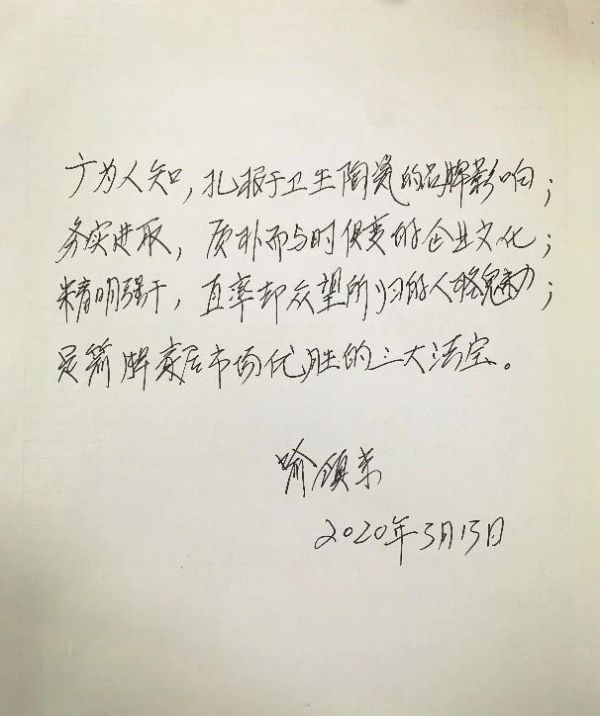 广为人知，扎根于卫生陶瓷的品牌影响；
务实进取，质朴而与时俱变的企业文化；
精明强干，直率却众望所归的人格魅力；
是箭牌家居市场优胜的三大法宝。
喻镇荣
2020年3月13日